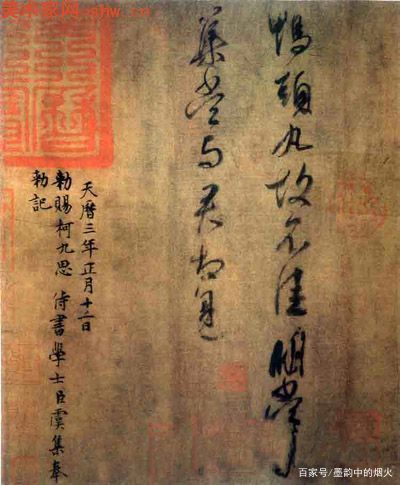 美术家网
鴨頭丸故不佳明當必
集當與君相見
天曆三年正月十二日
勅賜柯九思 侍書學士臣虞集奉
勅記
百家号/墨韵中的烟火